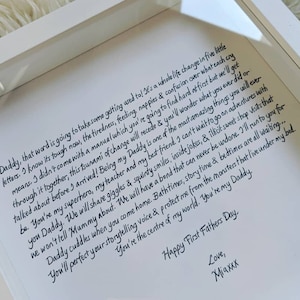 Daddy, that word is going to take some getting used to! It's a whole life change in five little
letters. I know its tough now, the tiredness, feeding, nappies & confusion over what each cry
means. I didn't come with a manual which you're going to find hard at first but we'll get
through it together, this tsunami of change will recede & you'll wonder what you ever did or
talked about before I arrived! Being my daddy is one of the most amazing things you will ever
be. You're my superhero, my teacher and my best friend. I can't wait to go on adventures with
you Daddy. We will share giggles & squirty smiles, inside jokes, & illicit sweet shop visits that
we won't tell Mummy about. We will have a bond that can never be undone. I'll wait for
Daddy cuddles when you come home. Bathtimes, story time & bedtime are all waiting...
You'll perfect your storytelling voice & protect me from the monsters that live under my bed.
You're the centre of my world. You're my Daddy.
Happy First Fathers Day,
Love,
Mia xxx